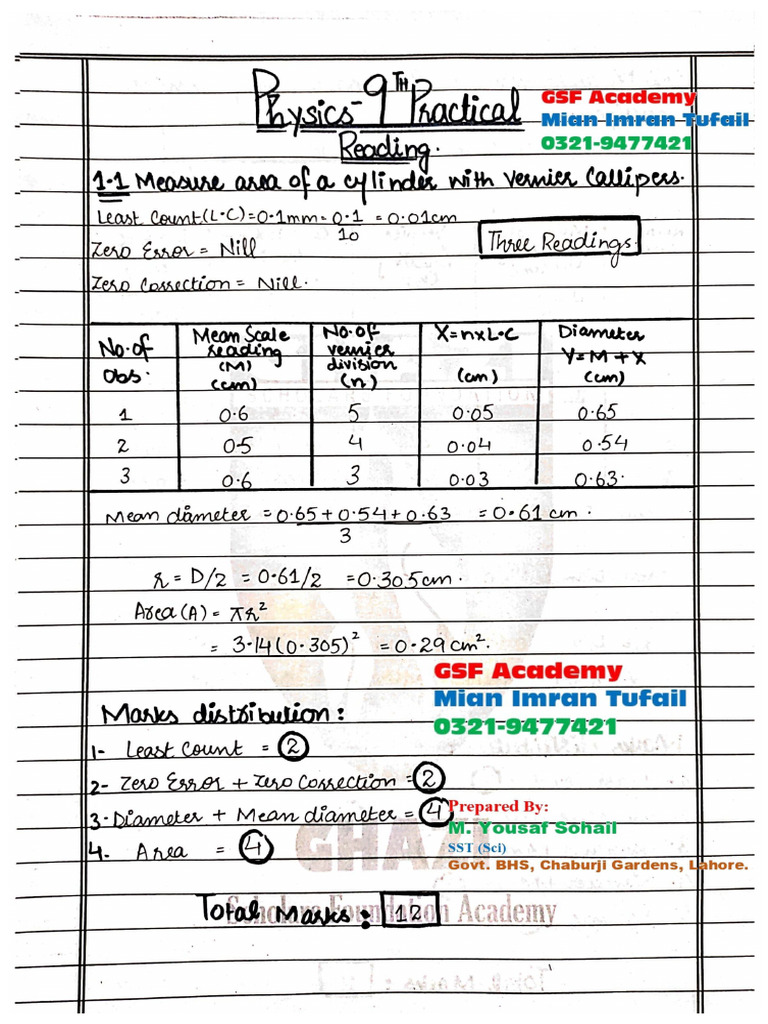 Physics - 9TH Practical
GSF Academy
Mian Imran Tufail
0321-9477421
Reading.
1.1 Measure area of a cylinder with vernier Callipers.
Least Count (L.C) = 0.1mm = 0.1/10 = 0.01cm
Zero Error = Nill
Three Readings.
Zero Correction = Nill.
No. of obs. | Mean Scale reading (M) (cm) | No. of vernier division (n) | X = n x L.C (cm) | Diameter Y = M + X (cm)
1 0.6 5 0.05 0.65
2 0.5 4 0.04 0.54
3 0.6 3 0.03 0.63.
Mean diameter = 0.65 + 0.54 + 0.63 / 3 = 0.61 cm.
r = D/2 = 0.61/2 = 0.305cm.
Area (A) = πr²
= 3.14(0.305)² = 0.29 cm².
GSF Academy
Mian Imran Tufail
0321-9477421
Marks distribution:
1- Least Count = 2
2- Zero Error + Zero Correction = 2
3- Diameter + Mean diameter = 4
Prepared By:
M. Yousaf Sohail
4. Area = 4
SST (Sci)
Govt. BHS, Chaburji Gardens, Lahore.
GHAZI
Scholars Foundation Academy
Total Marks: 12